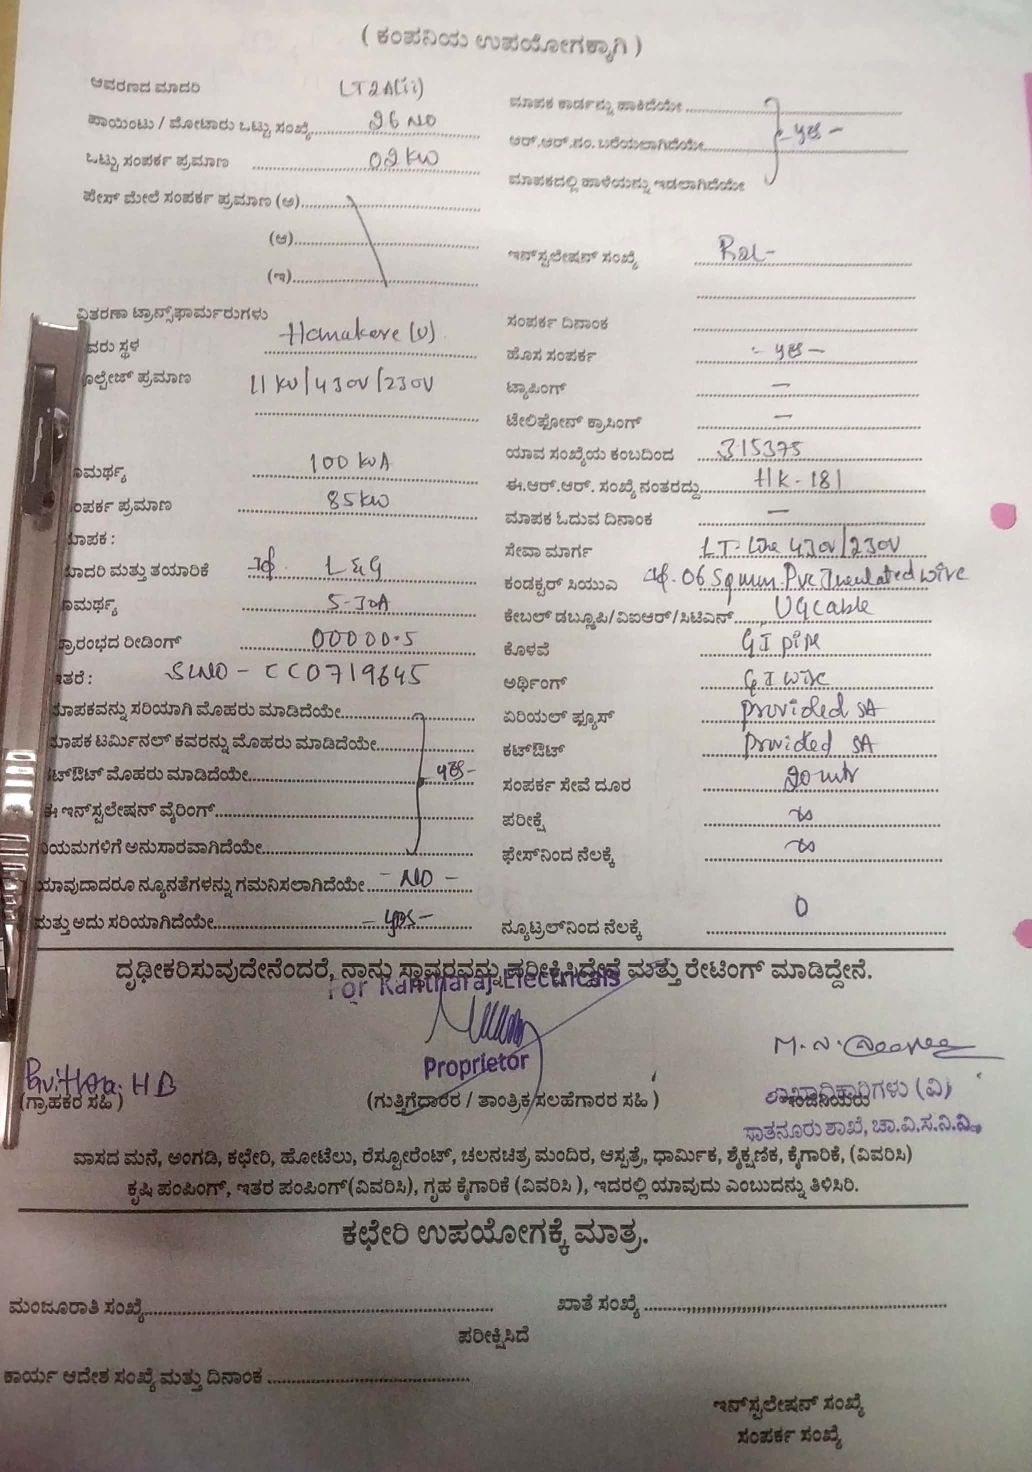 ( ಕಂಪನಿಯ ಉಪಯೋಗಕ್ಕಾಗಿ )
ಆವರಣದ ಮಾದರಿ LT2A(ii)
ಪಾಯಿಂಟು / ಮೋಟಾರು ಒಟ್ಟು ಸಂಖ್ಯೆ 26 NO
ಒಟ್ಟು ಸಂಪರ್ಕ ಪ್ರಮಾಣ 02 KW
ಫೇಸ್ ಮೇಲೆ ಸಂಪರ್ಕ ಪ್ರಮಾಣ (ಅ)
(ಆ)
(ಇ)
ಮಾಪಕ ಕಾರ್ಡನ್ನು ಹಾಕಿದೆಯೇ
ಆರ್.ಆರ್.ನಂ. ಬರೆಯಲಾಗಿದೆಯೇ yes -
ಮಾಪಕದಲ್ಲಿ ಹಾಳೆಯನ್ನು ಇಡಲಾಗಿದೆಯೇ
ಇನ್‌ಸ್ಟಲೇಷನ್ ಸಂಖ್ಯೆ
ವಿತರಣಾ ಟ್ರಾನ್ಸ್‌ಫಾರ್ಮರುಗಳು
ವರು ಸ್ಥಳ Honakere (V)
ೋಲ್ಟೇಜ್ ಪ್ರಮಾಣ 11 KV/430V/230V
ಾಮರ್ಥ್ಯ 100 KVA
ಂಪರ್ಕ ಪ್ರಮಾಣ 85 KW
ಾಪಕ :
ಾದರಿ ಮತ್ತು ತಯಾರಿಕೆ 1ф. L&G
ಾಮರ್ಥ್ಯ 5-30A
್ರಾರಂಭದ ರೀಡಿಂಗ್ 00000.5
ತರೆ : SLNO - CC0719645
ಾಪಕವನ್ನು ಸರಿಯಾಗಿ ಮೊಹರು ಮಾಡಿದೆಯೇ
ಾಪಕ ಟರ್ಮಿನಲ್ ಕವರನ್ನು ಮೊಹರು ಮಾಡಿದೆಯೇ
ಟ್‌ಔಟ್ ಮೊಹರು ಮಾಡಿದೆಯೇ yes -
ಈ ಇನ್‌ಸ್ಟಲೇಷನ್ ವೈರಿಂಗ್
ಿಯಮಗಳಿಗೆ ಅನುಸಾರವಾಗಿದೆಯೇ
ಯಾವುದಾದರೂ ನ್ಯೂನತೆಗಳನ್ನು ಗಮನಿಸಲಾಗಿದೆಯೇ - NO -
ಮತ್ತು ಅದು ಸರಿಯಾಗಿದೆಯೇ - yes -
ಸಂಪರ್ಕ ದಿನಾಂಕ
ಹೊಸ ಸಂಪರ್ಕ - yes -
ಟ್ಯಾಪಿಂಗ್ —
ಟೇಲಿಫೋನ್ ಕ್ರಾಸಿಂಗ್ —
ಯಾವ ಸಂಖ್ಯೆಯ ಕಂಬದಿಂದ 315375
ಈ.ಆರ್.ಆರ್. ಸಂಖ್ಯೆ ನಂತರದ್ದು HK - 181
ಮಾಪಕ ಓದುವ ದಿನಾಂಕ —
ಸೇವಾ ಮಾರ್ಗ LT- Line 430V/230V
ಕಂಡಕ್ಟರ್ ಸಿಯುಎ 1ф. 06 Sqmm. Pvc Insulated wire
ಕೇಬಲ್ ಡಬ್ಲ್ಯೂಪಿ/ವಿಐಆರ್/ಸಿಟಿಎಸ್ UG cable
ಕೊಳವೆ GI pipe
ಅರ್ಥಿಂಗ್ GI wire
ಏರಿಯಲ್ ಫ್ಯೂಸ್ provided 5A
ಕಟ್‌ಔಟ್ provided 5A
ಸಂಪರ್ಕ ಸೇವೆ ದೂರ 20 mtr
ಪರೀಕ್ಷೆ ∞
ಫೇಸ್‌ನಿಂದ ನೆಲಕ್ಕೆ ∞
ನ್ಯೂಟ್ರಲ್‌ನಿಂದ ನೆಲಕ್ಕೆ 0
ದೃಢೀಕರಿಸುವುದೇನೆಂದರೆ, ನಾನು ಸ್ಥಾವರವನ್ನು ಪರೀಕ್ಷಿಸಿದ್ದೇನೆ ಮತ್ತು ರೇಟಿಂಗ್ ಮಾಡಿದ್ದೇನೆ.
For Kantharaj Electricals
Proprietor
Pavithra. H B
(ಗ್ರಾಹಕರ ಸಹಿ)
(ಗುತ್ತಿಗೆದಾರರ / ತಾಂತ್ರಿಕ ಸಲಹೆಗಾರರ ಸಹಿ )
ಇಂಜಿನಿಯರು
ಶಾಖಾಧಿಕಾರಿಗಳು (ವಿ)
ಸಾತನೂರು ಶಾಖೆ, ಚಾ.ವಿ.ಸ.ನಿ.ನಿ.
ವಾಸದ ಮನೆ, ಅಂಗಡಿ, ಕಛೇರಿ, ಹೋಟೆಲು, ರೆಸ್ಟೋರೆಂಟ್, ಚಲನಚಿತ್ರ ಮಂದಿರ, ಆಸ್ಪತ್ರೆ, ಧಾರ್ಮಿಕ, ಶೈಕ್ಷಣಿಕ, ಕೈಗಾರಿಕೆ, (ವಿವರಿಸಿ)
ಕೃಷಿ ಪಂಪಿಂಗ್, ಇತರ ಪಂಪಿಂಗ್(ವಿವರಿಸಿ), ಗೃಹ ಕೈಗಾರಿಕೆ (ವಿವರಿಸಿ ), ಇದರಲ್ಲಿ ಯಾವುದು ಎಂಬುದನ್ನು ತಿಳಿಸಿರಿ.
ಕಛೇರಿ ಉಪಯೋಗಕ್ಕೆ ಮಾತ್ರ.
ಮಂಜೂರಾತಿ ಸಂಖ್ಯೆ ಖಾತೆ ಸಂಖ್ಯೆ
ಪರೀಕ್ಷಿಸಿದೆ
ಕಾರ್ಯ ಆದೇಶ ಸಂಖ್ಯೆ ಮತ್ತು ದಿನಾಂಕ
ಇನ್‌ಸ್ಟಲೇಷನ್ ಸಂಖ್ಯೆ
ಸಂಪರ್ಕ ಸಂಖ್ಯೆ